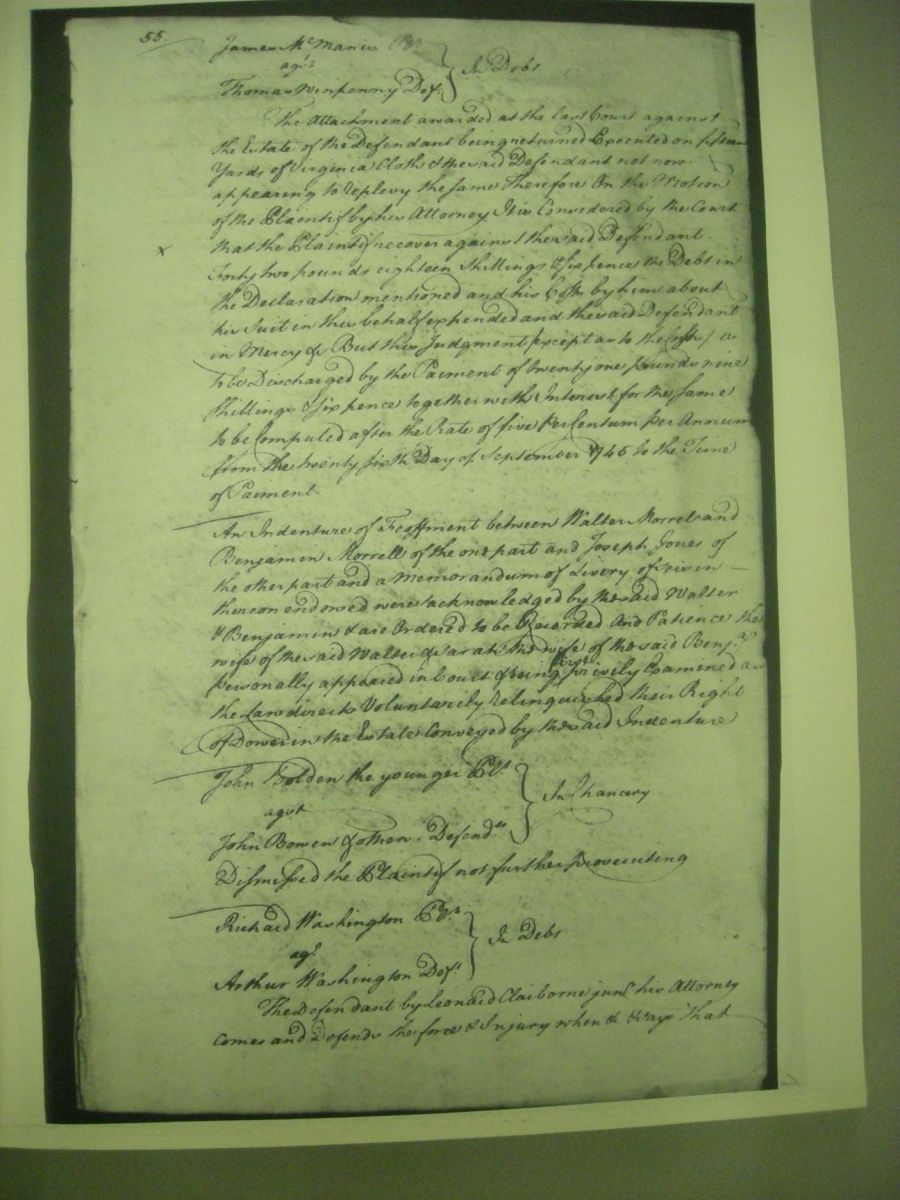 55.
James McManie Pt.
agst
Thomas Winpenny Def.
In Debt
The Attachment awarded at the last Court against
the Estate of the Defendant being returned Executed on fifteen
Yards of Virginia Cloth & the said Defendant not now
appearing to Replevy the same Therefore On the Motion
of the Plaintif by his Attorney It is Considered by the Court
that the Plaintif recover against the said Defendant
Forty two pounds eighteen shillings & sixpence the Debt in
the Declaration mentioned and his Costs by him about
his Suit in this behalf expended and the said Defendant
in Mercy &c But this Judgment (except as to the Costs) is
to be Discharged by the Paiment of twenty one pounds nine
shillings & sixpence together with Interest for the same
to be Computed after the Rate of five Per Centum Per Annum
from the twenty sixth Day of September 1745 to the Time
of Paiment
An Indenture of Feoffment between Walter Morrel and
Benjamin Morrell of the one part and Joseph Jones of
the other part and a Memorandum of Livery of Seisin
thereon endorsed were acknowledged by the said Walter
& Benjamin & are Ordered to be Recorded And Patience the
wife of the said Walter & Sarah the wife of the said Benja.
personally appeared in Court & being first privily Examined as
the Law directs Voluntarily Relinquished their Right
of Dower in the Estate Conveyed by the said Indenture
John Bolden the younger Plt
agst
John Bowen & others Defendts
In Chancery
Dismissed the Plaintif not further prosecuting
Richard Washington Plt.
agt
Arthur Washington Deft
In Debt
The Defendant by Leonard Claiborne junr his Attorney
comes and Defends the force & Injury when &c & says that